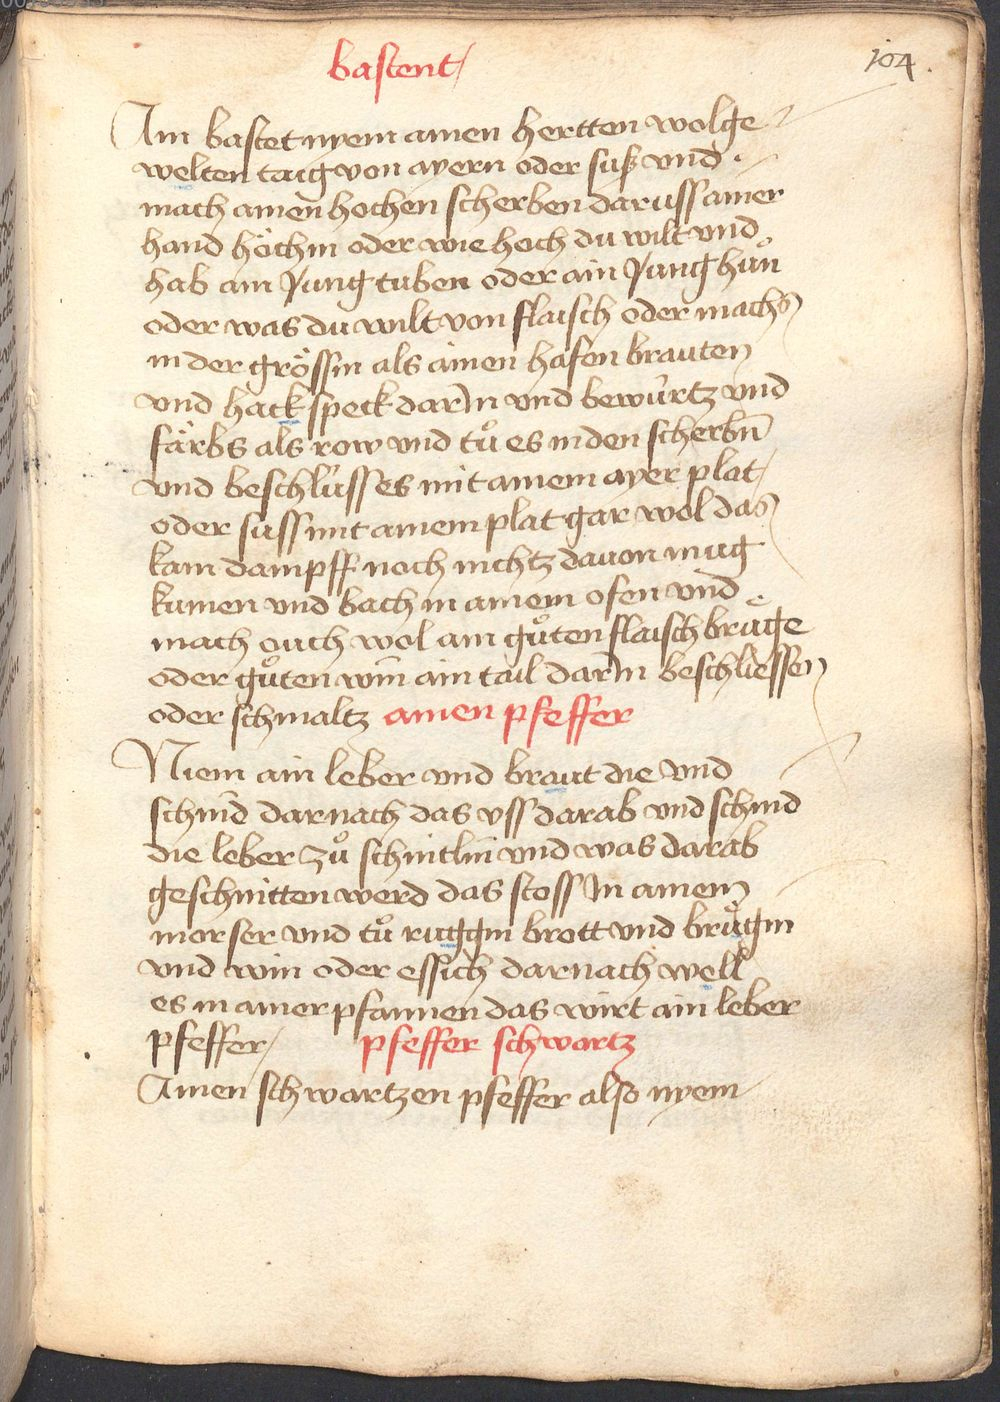 bastent/
104.
Ain bastet nyem ainen hertten wolge
welten taig von ayern oder suß vnd
mach ainen hochen scherben daruss ainer
hand höchin oder wie hoch du wilt vnd
hab ain Jung tuben oder ain Jung hůn
oder was du wilt von flaisch oder machs
in der grössin als ainen hafen brauten
vnd hack speck darIn vnd bewürtz vnd
färbs als row vnd tů es in den scherbn̄
vnd beschlüss es mit ainem ayer plat/
oder suss mit ainem plat gar wol das
kain dampff noch nichtz dauon mug
kumen vnd bach in ainem ofen vnd
mach ouch wol ain gůten flaisch brůge
oder gůten win ain tail darIn beschliessen
oder schmaltz ainen pfeffer
Niem ain leber vnd braut die vnd
schnid darnach das vss darab vnd schnid
die leber zů schnitlin vnd was darab
geschnitten werd das stoss In ainem
morser vnd tů ruggin brott vnd brůgin
vnd win oder essich darnach well
es in ainer pfannen das wirt ain leber
pfeffer/ pfeffer schwartz
Ainen schwartzen pfeffer also nyem